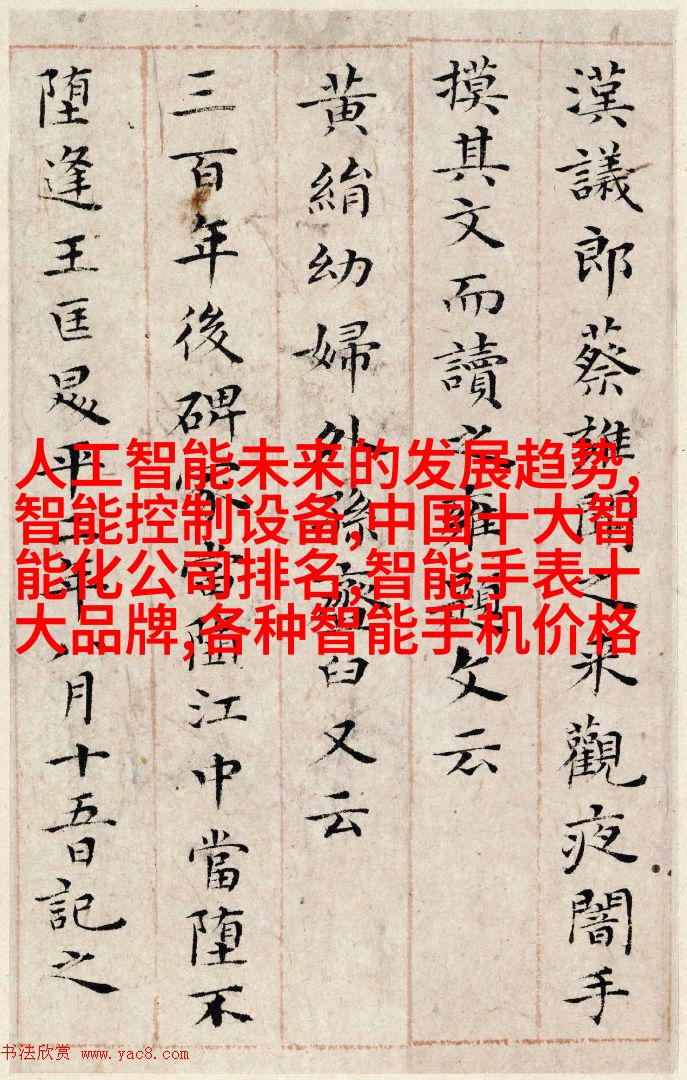 漢議郎蔡雝聞之来觀夜闇手
摸其文而讀之雍題文云
黄絹幼婦外孫齏臼又云
三百年後碑冢當堕江中當堕不
堕逢王匡昇平二年八月十五日記之
人工智能未来的发展趋势,
智能控制设备,中国十大智
能化公司排名,智能手表十
大品牌,各种智能手机价格
书法欣赏 www.yac8.com